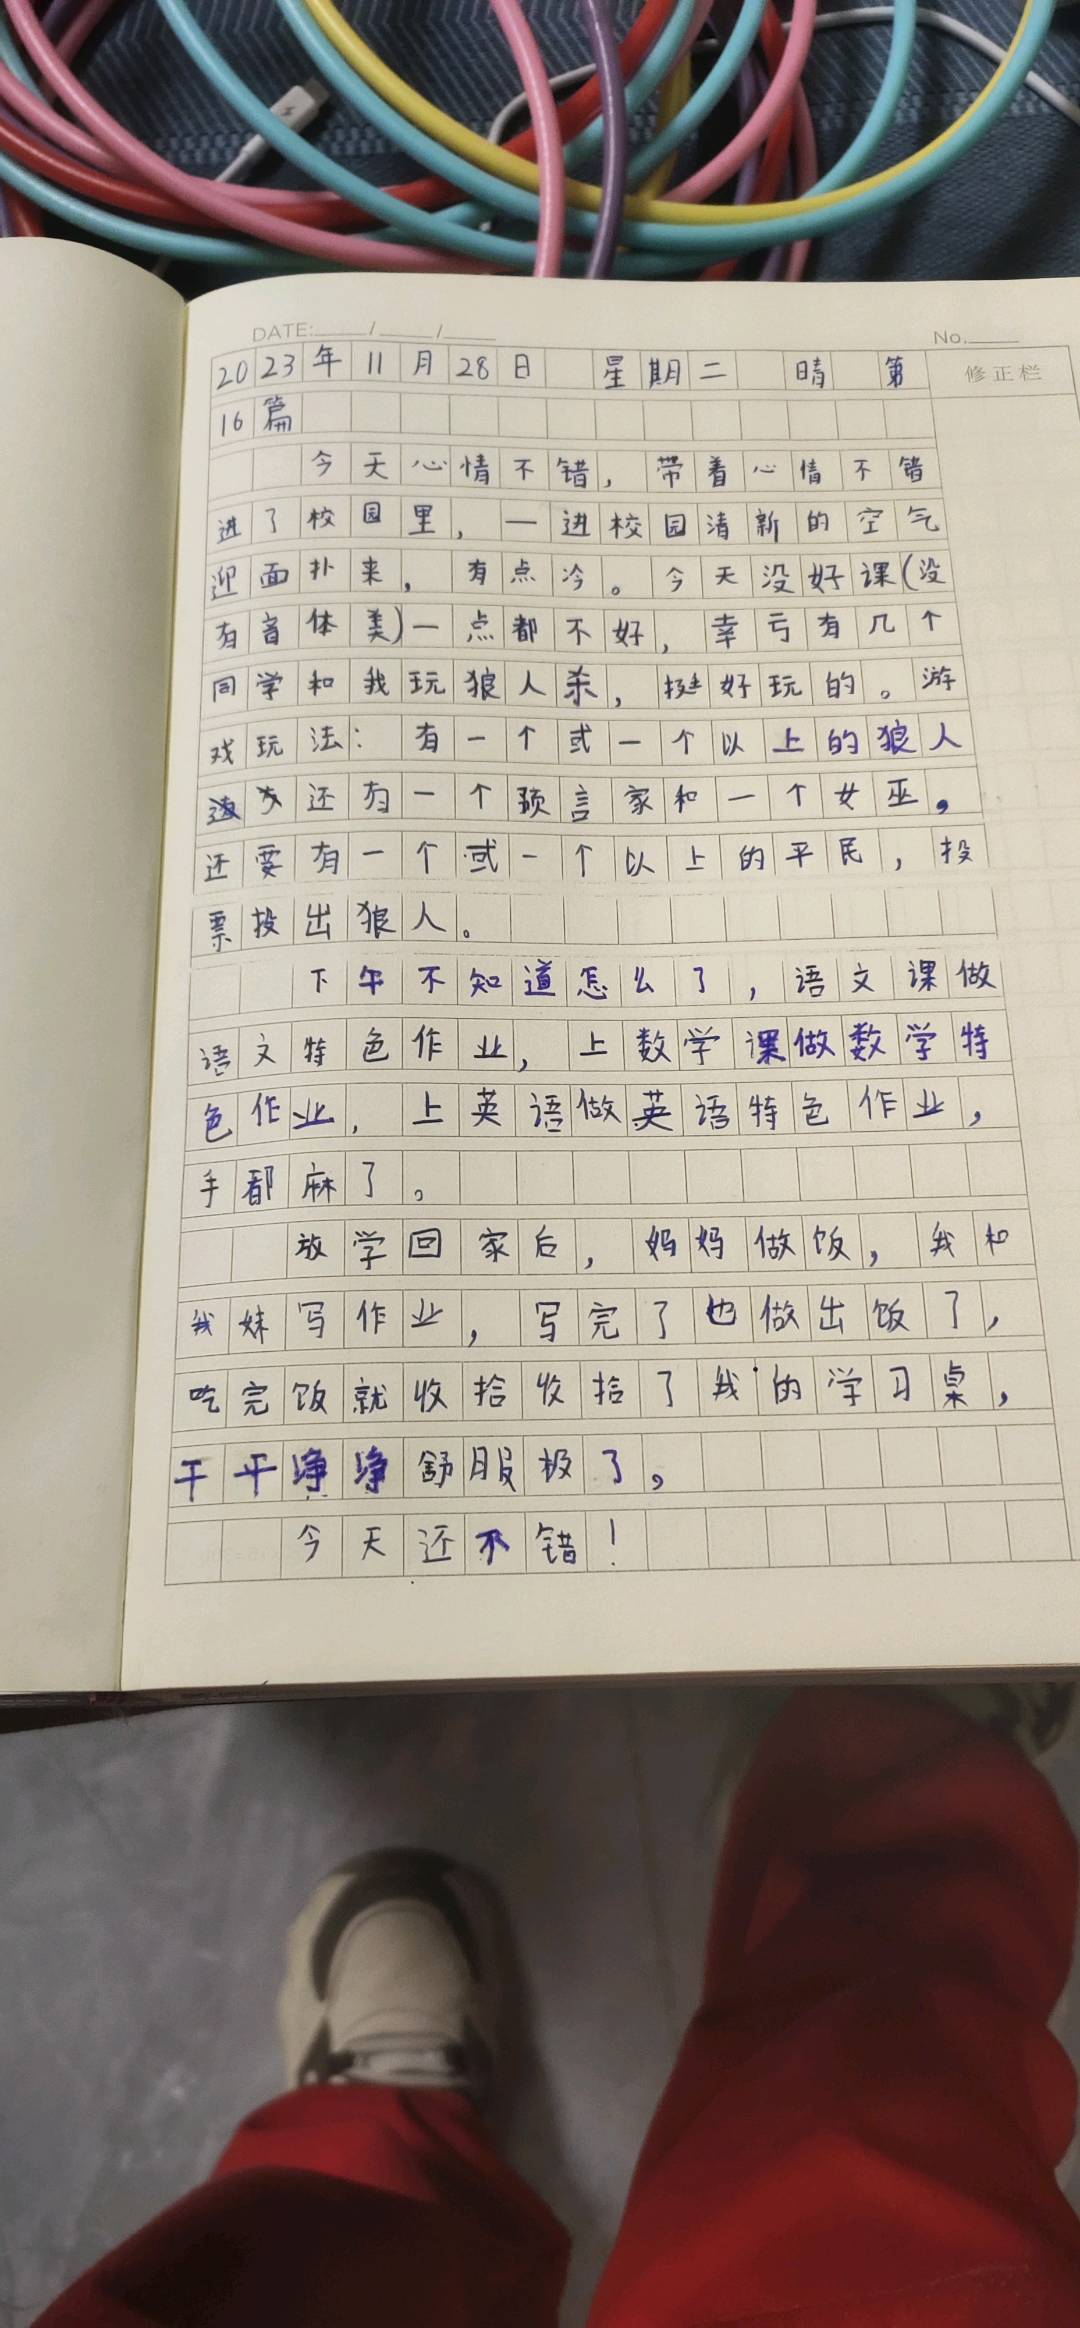 DATE: / / No.
2023年11月28日 星期二 晴 第 修正栏
16篇
今天心情不错，带着心情不错
进了校园里，一进校园清新的空气
迎面扑来，有点冷。今天没好课(没
有音体美)一点都不好，幸亏有几个
同学和我玩狼人杀，挺好玩的。游
戏玩法：有一个或一个以上的狼人
还有一个预言家和一个女巫，
还要有一个或一个以上的平民，投
票投出狼人。
下午不知道怎么了，语文课做
语文特色作业，上数学课做数学特
色作业，上英语做英语特色作业，
手都麻了。
放学回家后，妈妈做饭，我和
我妹写作业，写完了也做出饭了，
吃完饭就收拾收拾了我的学习桌，
干干净净舒服极了。
今天还不错！